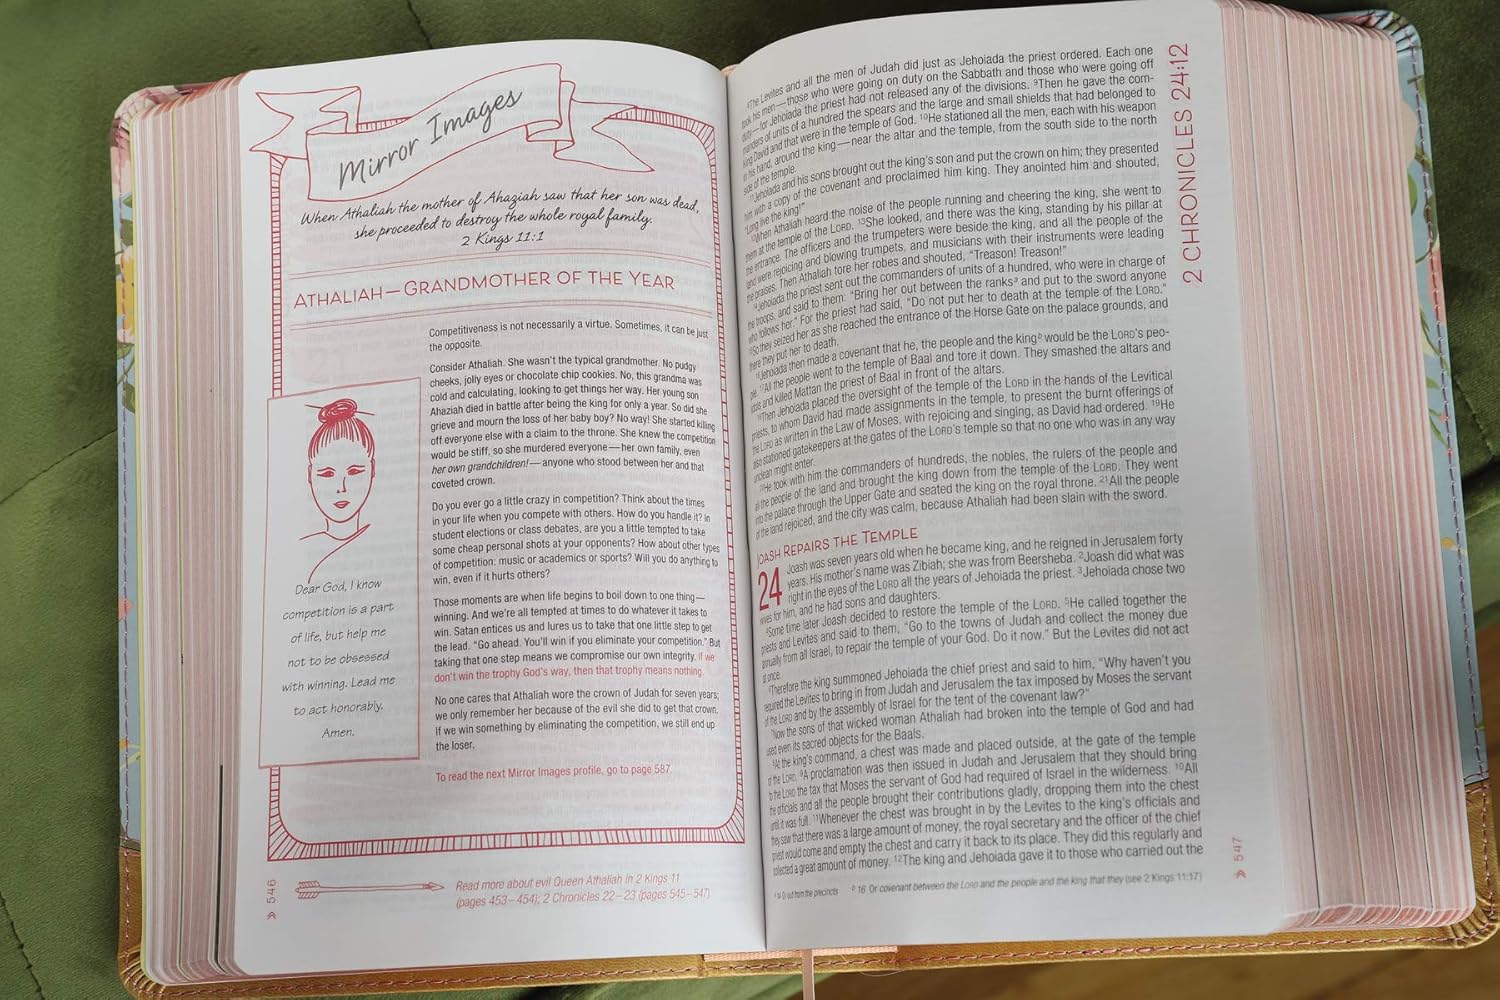 Mirror Images
When Athaliah the mother of Ahaziah saw that her son was dead,
she proceeded to destroy the whole royal family.
2 Kings 11:1
ATHALIAH—GRANDMOTHER OF THE YEAR
Competitiveness is not necessarily a virtue. Sometimes, it can be just
the opposite.
Consider Athaliah. She wasn't the typical grandmother. No pudgy
cheeks, jolly eyes or chocolate chip cookies. No, this grandma was
cold and calculating, looking to get things her way. Her young son
Ahaziah died in battle after being the king for only a year. So did she
grieve and mourn the loss of her baby boy? No way! She started killing
off everyone else with a claim to the throne. She knew the competition
would be stiff, so she murdered everyone—her own family, even
her own grandchildren!—anyone who stood between her and that
coveted crown.
Do you ever go a little crazy in competition? Think about the times
in your life when you compete with others. How do you handle it? In
student elections or class debates, are you a little tempted to take
some cheap personal shots at your opponents? How about other types
of competition: music or academics or sports? Will you do anything to
win, even if it hurts others?
Those moments are when life begins to boil down to one thing—
winning. And we're all tempted at times to do whatever it takes to
win. Satan entices us and lures us to take that one little step to get
the lead. "Go ahead. You'll win if you eliminate your competition." But
taking that one step means we compromise our own integrity. If we
don't win the trophy God's way, then that trophy means nothing.
No one cares that Athaliah wore the crown of Judah for seven years;
we only remember her because of the evil she did to get that crown.
If we win something by eliminating the competition, we still end up
the loser.
To read the next Mirror Images profile, go to page 587.
Dear God, I know
competition is a part
of life, but help me
not to be obsessed
with winning. Lead me
to act honorably.
Amen.
Read more about evil Queen Athaliah in 2 Kings 11
(pages 453–454); 2 Chronicles 22–23 (pages 545–547).
» 546
2 CHRONICLES 24:12
8The Levites and all the men of Judah did just as Jehoiada the priest ordered. Each one
took his men—those who were going on duty on the Sabbath and those who were going off
duty—for Jehoiada the priest had not released any of the divisions. 9Then he gave the com-
manders of units of a hundred the spears and the large and small shields that had belonged to
King David and that were in the temple of God. 10He stationed all the men, each with his weapon
in his hand, around the king—near the altar and the temple, from the south side to the north
side of the temple.
11Jehoiada and his sons brought out the king's son and put the crown on him; they presented
him with a copy of the covenant and proclaimed him king. They anointed him and shouted,
"Long live the king!"
12When Athaliah heard the noise of the people running and cheering the king, she went to
them at the temple of the LORD. 13She looked, and there was the king, standing by his pillar at
the entrance. The officers and the trumpeters were beside the king, and all the people of the
land were rejoicing and blowing trumpets, and musicians with their instruments were leading
the praises. Then Athaliah tore her robes and shouted, "Treason! Treason!"
14Jehoiada the priest sent out the commanders of units of a hundred, who were in charge of
the troops, and said to them: "Bring her out between the ranks a and put to the sword anyone
who follows her." For the priest had said, "Do not put her to death at the temple of the LORD."
15So they seized her as she reached the entrance of the Horse Gate on the palace grounds, and
there they put her to death.
16Jehoiada then made a covenant that he, the people and the king b would be the LORD's peo-
ple. 17All the people went to the temple of Baal and tore it down. They smashed the altars and
idols and killed Mattan the priest of Baal in front of the altars.
18Then Jehoiada placed the oversight of the temple of the LORD in the hands of the Levitical
priests, to whom David had made assignments in the temple, to present the burnt offerings of
the LORD as written in the Law of Moses, with rejoicing and singing, as David had ordered. 19He
also stationed gatekeepers at the gates of the LORD's temple so that no one who was in any way
unclean might enter.
20He took with him the commanders of hundreds, the nobles, the rulers of the people and
all the people of the land and brought the king down from the temple of the LORD. They went
into the palace through the Upper Gate and seated the king on the royal throne. 21All the people
of the land rejoiced, and the city was calm, because Athaliah had been slain with the sword.
JOASH REPAIRS THE TEMPLE
24 Joash was seven years old when he became king, and he reigned in Jerusalem forty
years. His mother's name was Zibiah; she was from Beersheba. 2Joash did what was
right in the eyes of the LORD all the years of Jehoiada the priest. 3Jehoiada chose two
wives for him, and he had sons and daughters.
4Some time later Joash decided to restore the temple of the LORD. 5He called together the
priests and Levites and said to them, "Go to the towns of Judah and collect the money due
annually from all Israel, to repair the temple of your God. Do it now." But the Levites did not act
at once.
6Therefore the king summoned Jehoiada the chief priest and said to him, "Why haven't you
required the Levites to bring in from Judah and Jerusalem the tax imposed by Moses the servant
of the LORD and by the assembly of Israel for the tent of the covenant law?"
7Now the sons of that wicked woman Athaliah had broken into the temple of God and had
used even its sacred objects for the Baals.
8At the king's command, a chest was made and placed outside, at the gate of the temple
of the LORD. 9A proclamation was then issued in Judah and Jerusalem that they should bring
to the LORD the tax that Moses the servant of God had required of Israel in the wilderness. 10All
the officials and all the people brought their contributions gladly, dropping them into the chest
until it was full. 11Whenever the chest was brought in by the Levites to the king's officials and
they saw that there was a large amount of money, the royal secretary and the officer of the chief
priest would come and empty the chest and carry it back to its place. They did this regularly and
collected a great amount of money. 12The king and Jehoiada gave it to those who carried out the
a 14 Or out from the precincts b 16 Or covenant between the LORD and the people and the king that they (see 2 Kings 11:17)
» 547